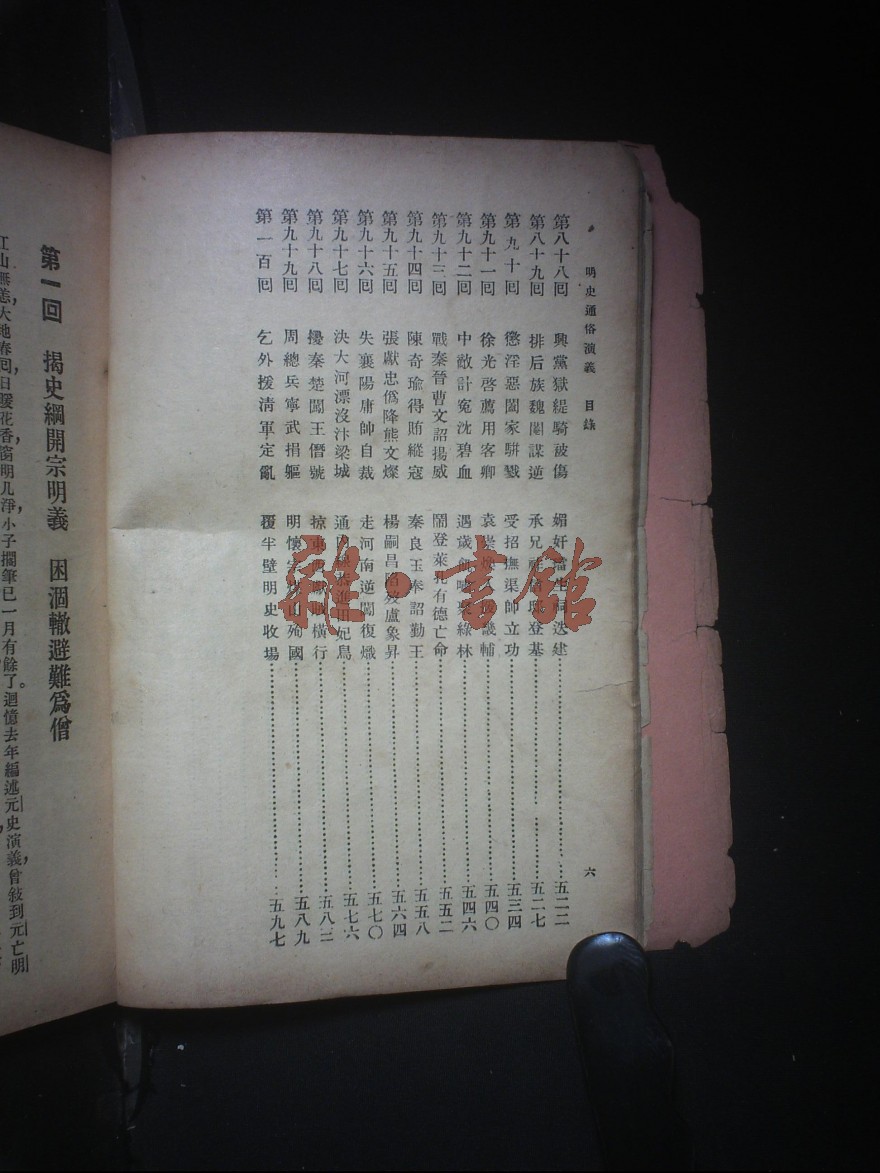 明史通俗演義　目錄　六
第八十八回　興黨獄緹騎被傷　媚奸生祠迭建……五二二
第八十九回　排后族魏閹謀逆　承兄登基……五二七
第九十回　懲淫惡閹家駢戮　受招撫渠帥立功……五三四
第九十一回　徐光啓薦用客卿　袁畿輔……五四〇
第九十二回　中敵計冤沈碧血　遇歲聚綠林……五四六
第九十三回　戰秦晉曹文詔揚威　鬧登萊孔有德亡命……五五二
第九十四回　陳奇瑜得賄縱寇　秦良玉奉詔勤王……五五八
第九十五回　張獻忠僞降熊文燦　楊嗣昌陷歿盧象昇……五六四
第九十六回　失襄陽庸帥自裁　走河南逆闖復熾……五七〇
第九十七回　決大河漂沒汴梁城　通內田妃鳥……五七六
第九十八回　擾秦楚闖王僭號　掠東西獻賊橫行……五八三
第九十九回　周總兵寧武捐軀　明懷宗煤山殉國……五八九
第一百回　乞外援清軍定亂　覆半壁明史收場……五九七
第一回　揭史綱開宗明義　困涸轍避難爲僧
江山無恙，大地春回，日暖花香，窗明几淨，小子擱筆已一月有餘了。迴憶去年編述元史演義，曾敍到元亡明
雜·書館